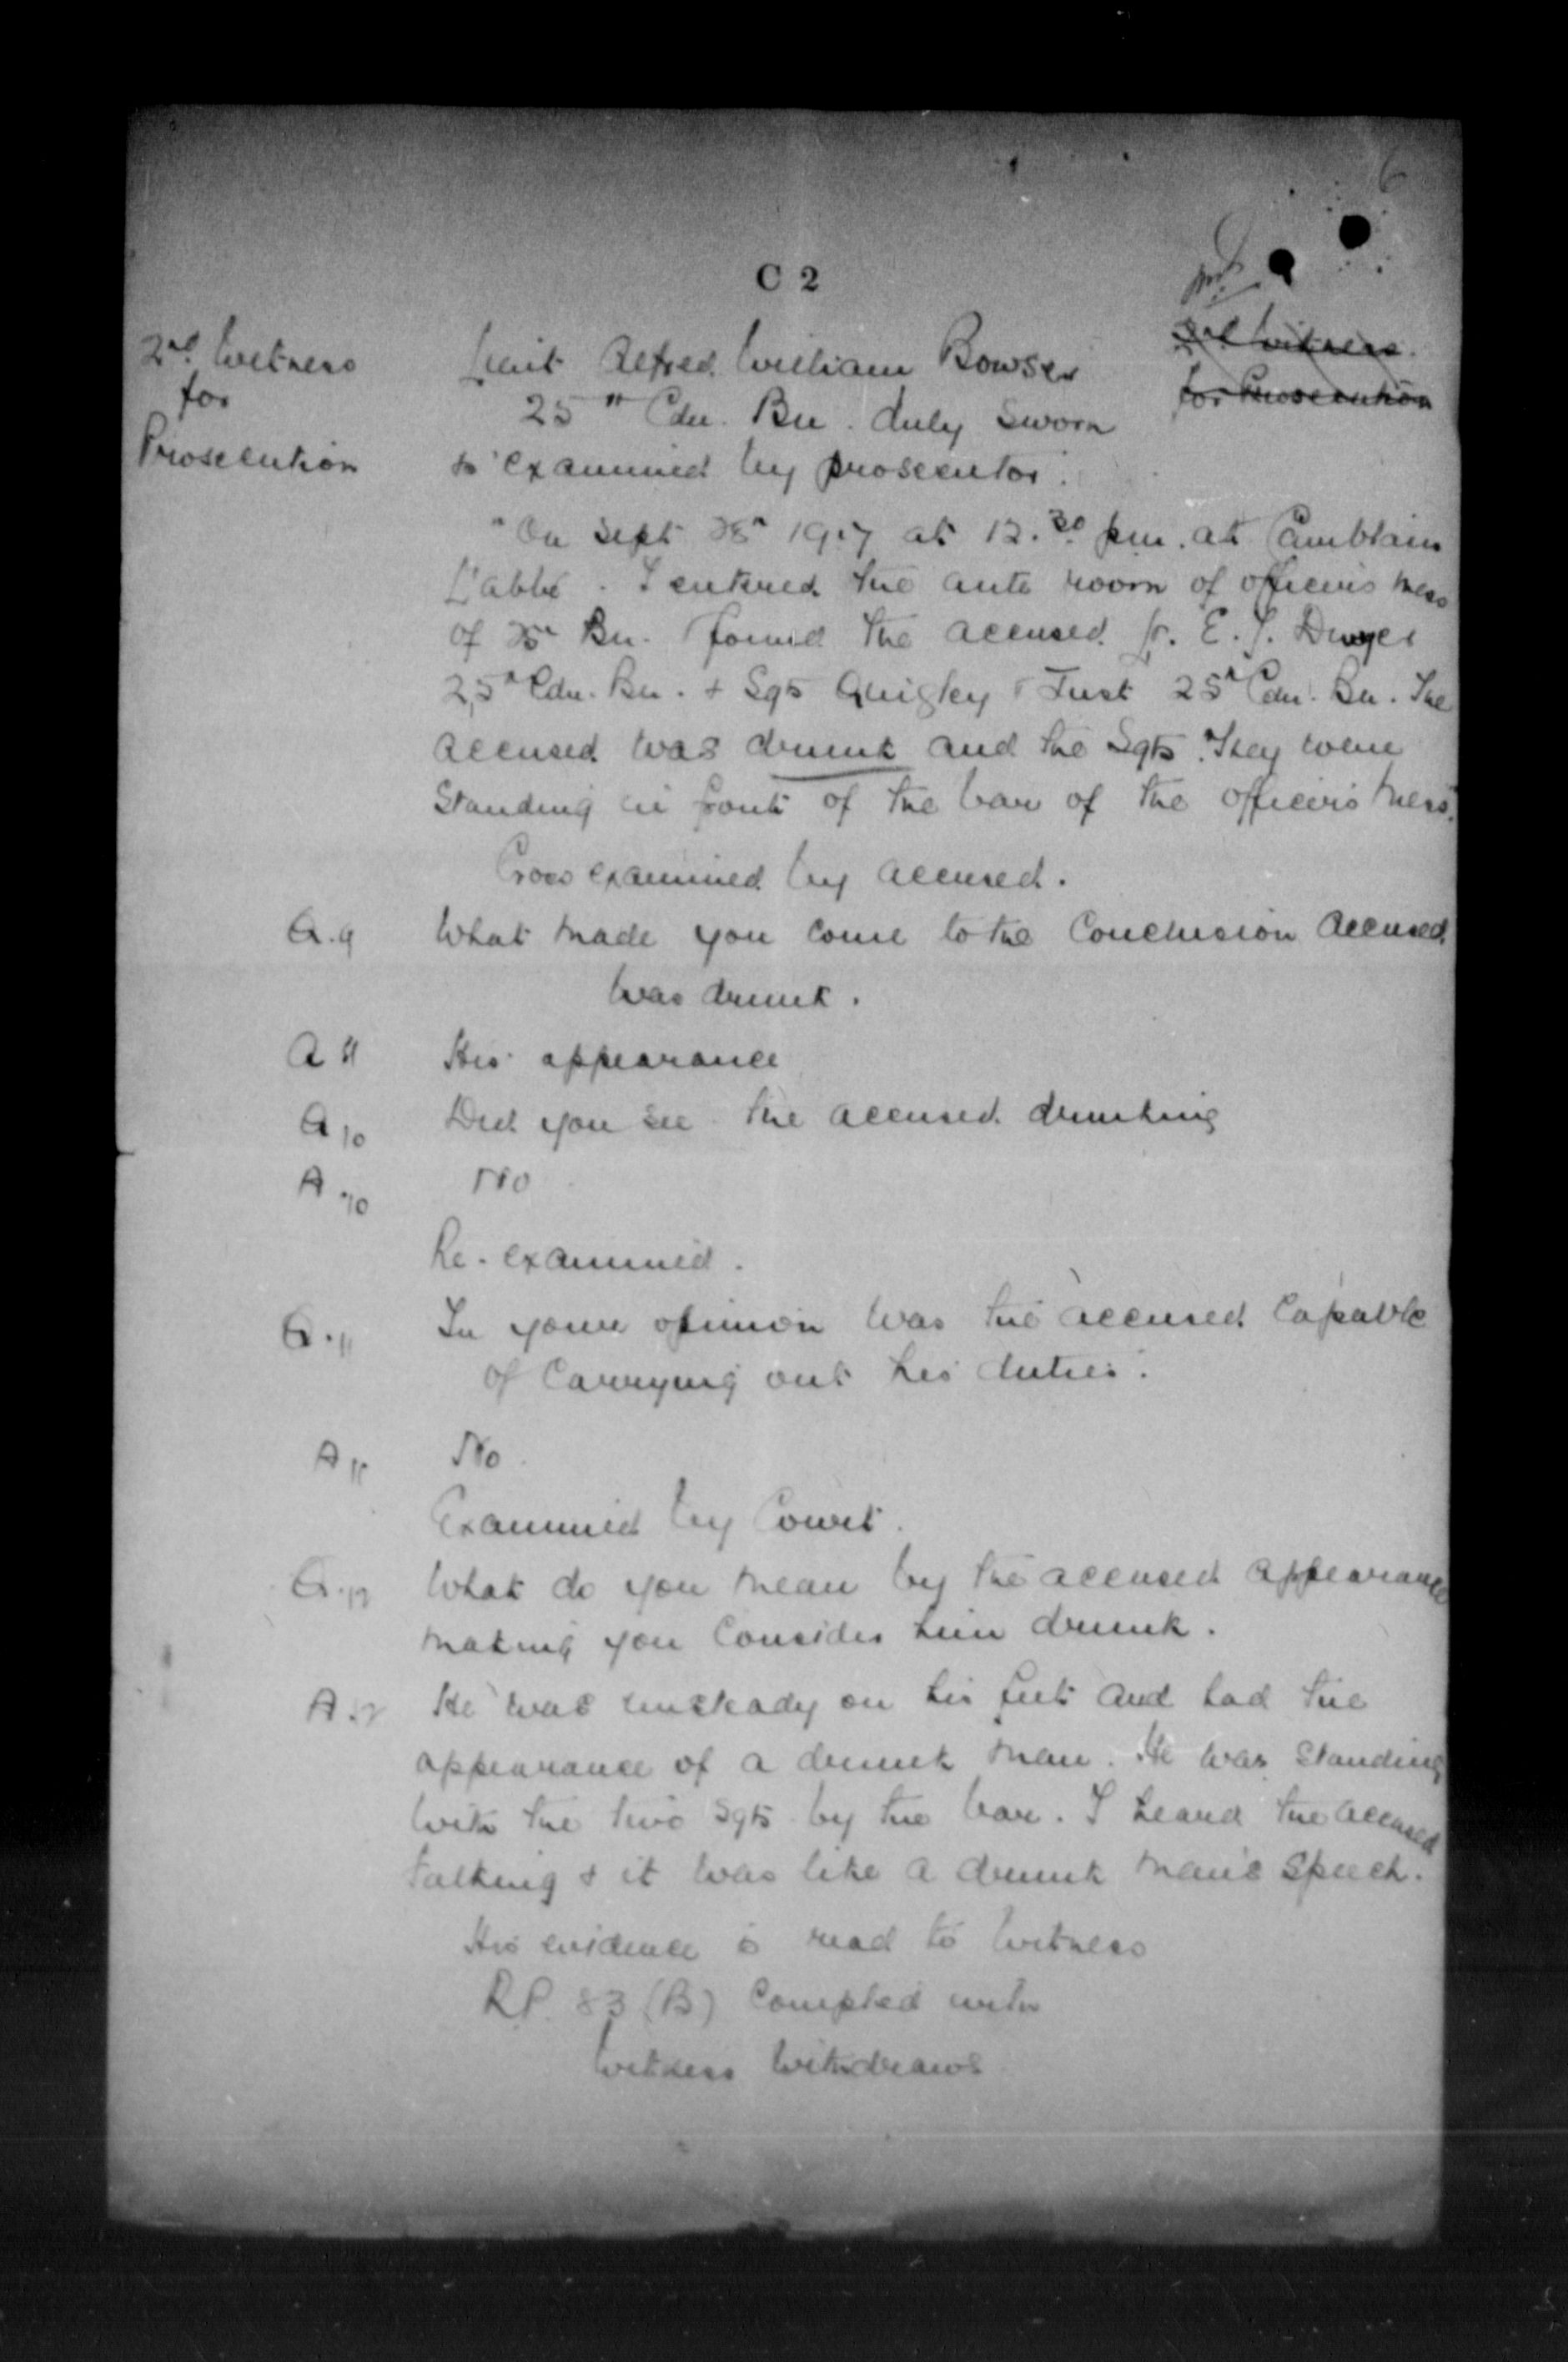 6
C 2
2nd Witness
for
Prosecution
2nd Witness
for Prosecution
Lieut Alfred William Bowser
25th Cdn. Bn. duly sworn
is examined by prosecutor.
"On Sept 25th 1917 at 12.30 pm. at Camblain
L'abbé. I entered the ante room of officers mess
of 25th Bn. found the accused Pr. E. J. Dwyer
25th Cdn. Bn. & Sgts Quigley & Tust 25th Cdn. Bn. The
accused was drunk and the Sgts. They were
standing in front of the bar of the officers mess."
Cross examined by accused.
Q.9 What made you come to the conclusion accused
was drunk.
A 9 His appearance
Q 10 Did you see the accused drinking
A.10 No
Re-examined.
Q.11 In your opinion was the accused capable
of carrying out his duties.
A 11 No.
Examined by Court.
Q.12 What do you mean by the accused appearance
making you consider him drunk.
A.12 He was unsteady on his feet and had the
appearance of a drunk man. He was standing
with the two Sgts by the bar. I heard the accused
talking & it was like a drunk man's speech.
His evidence is read to witness
R.P. 83 (B) Complied with
Witness withdraws